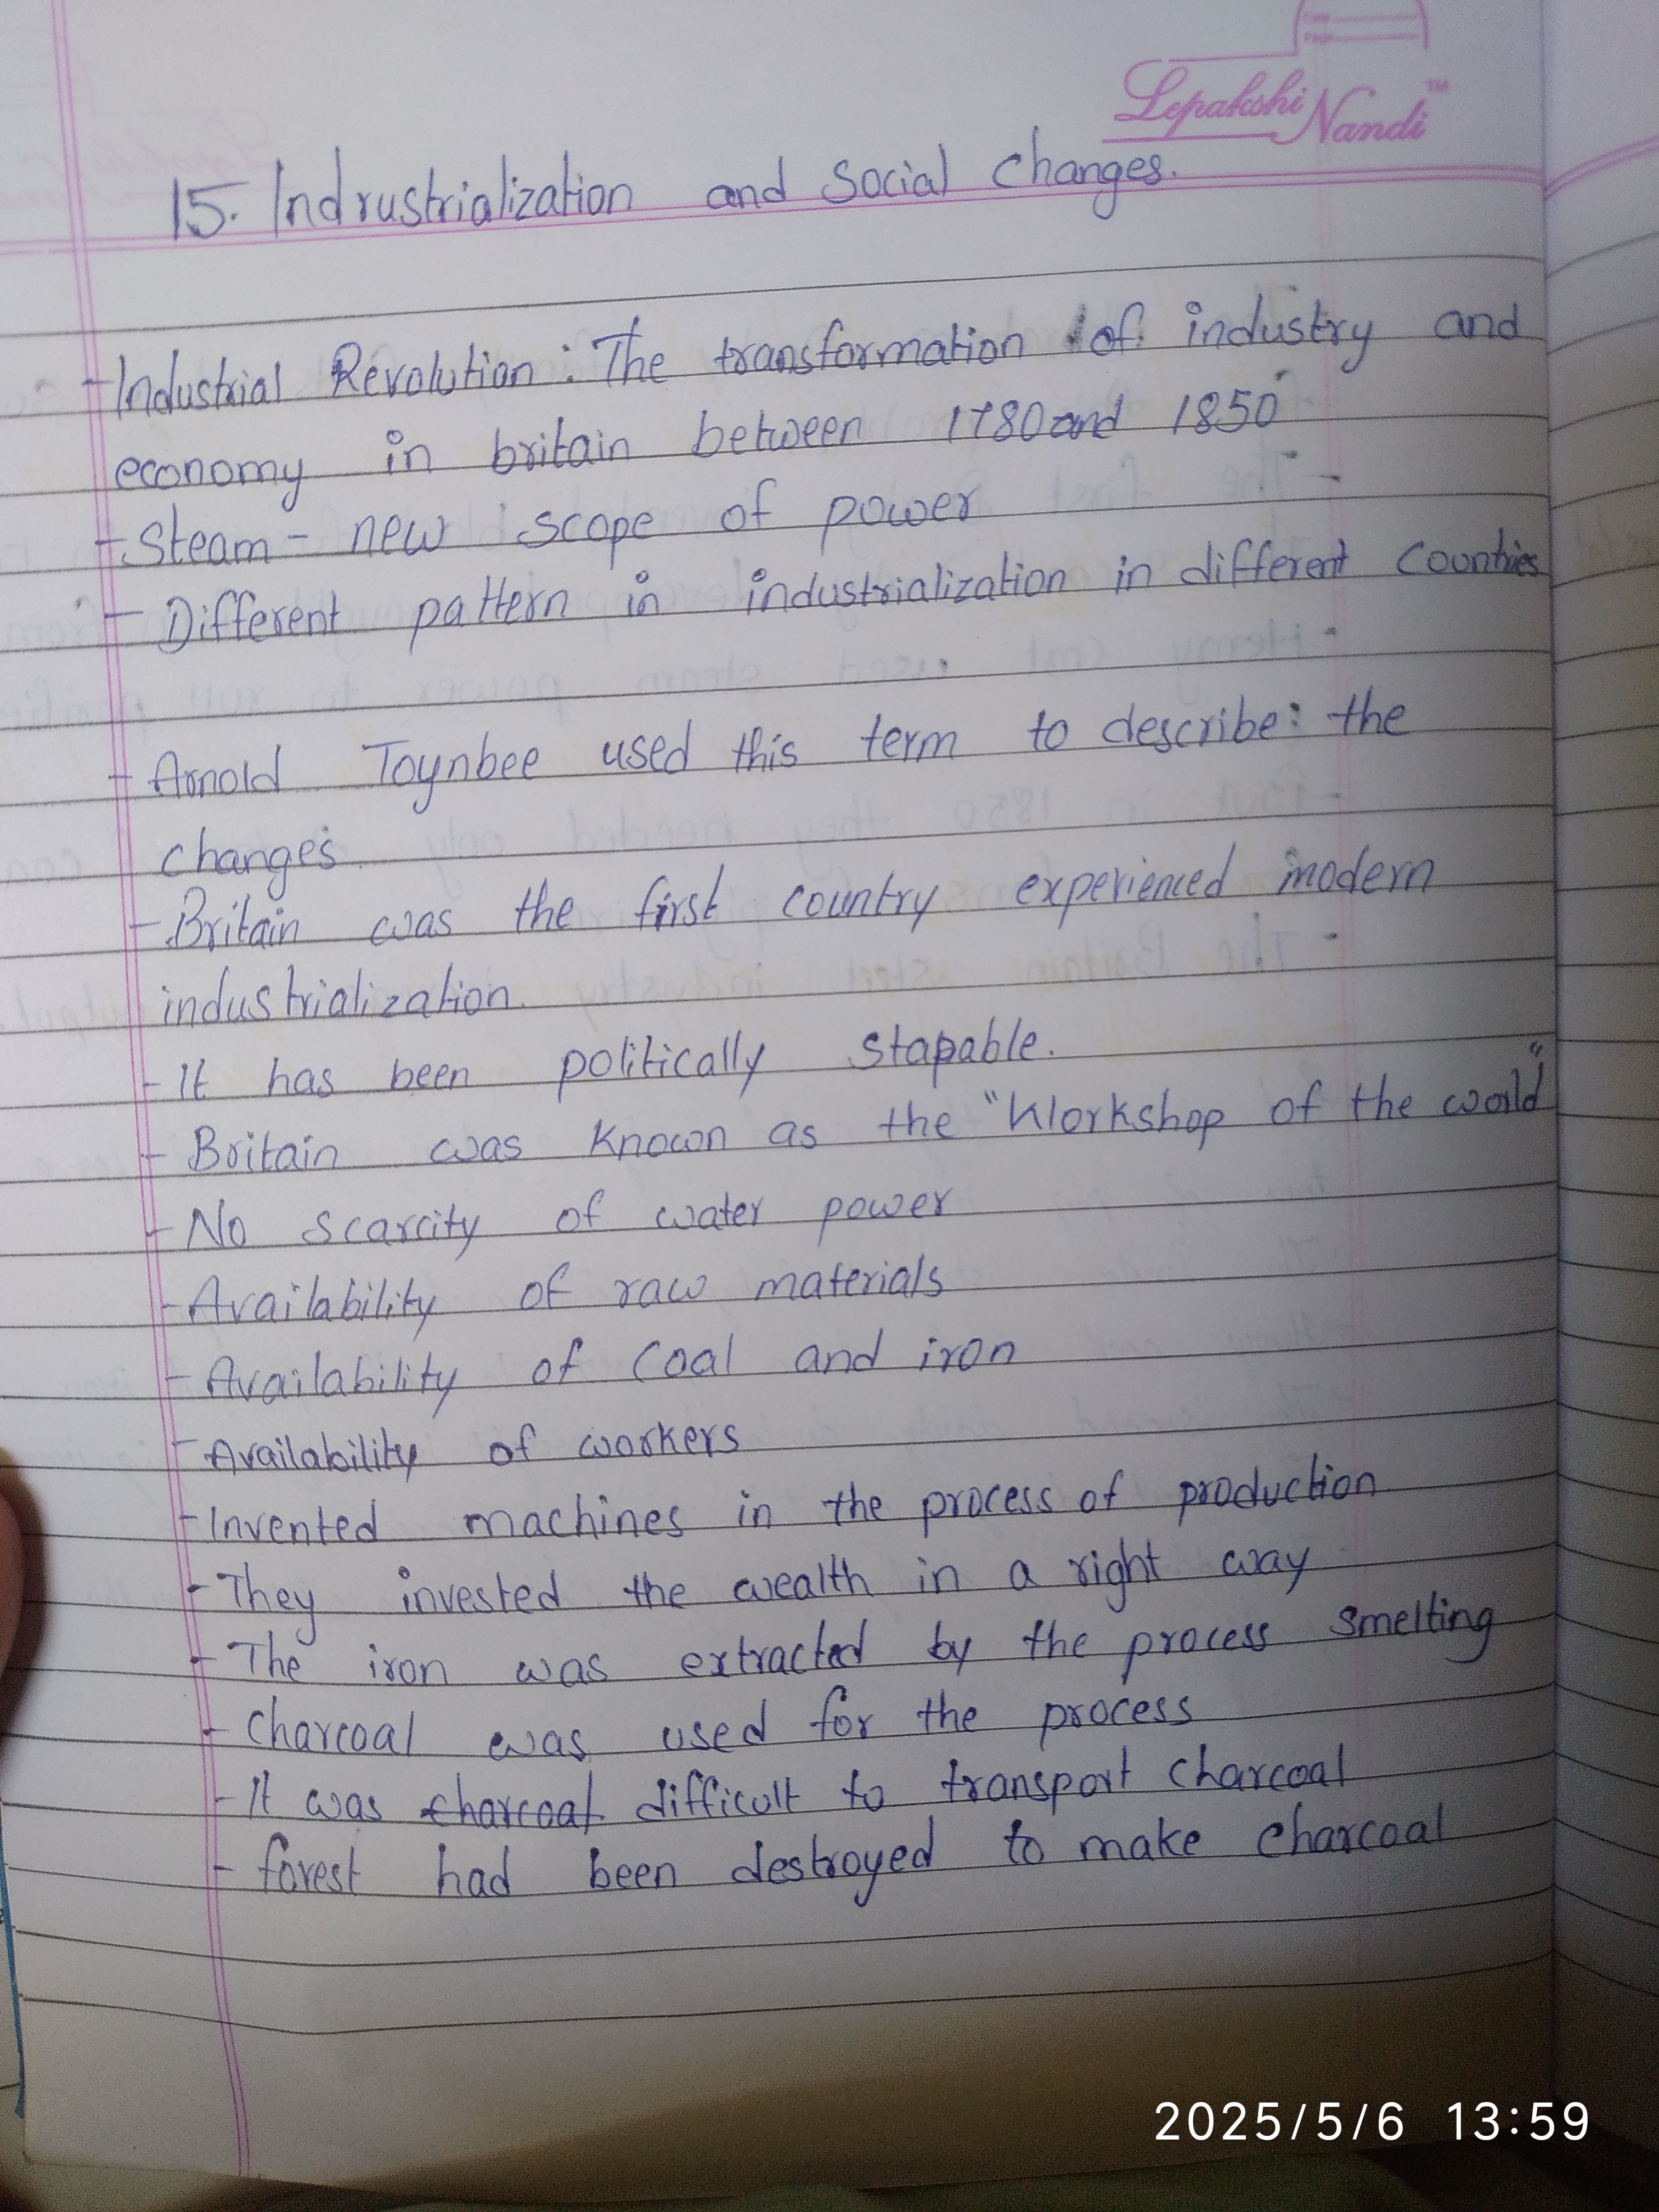 Lepakshi Nandi™
15. Indrustrialization and Social Changes.
- Industrial Revolution: The transformation of industry and
economy in britain between 1780 and 1850
- Steam - new scope of power
- Different pattern in industrialization in different Countries
- Arnold Toynbee used this term to describe: the
changes
- Britain was the first country experienced modern
industrialization.
- It has been politically stapable.
- Britain was known as the "Workshop of the world"
- No scarcity of water power
- Availability of raw materials
- Availability of Coal and iron
- Availability of workers
- Invented machines in the process of production
- They invested the wealth in a right way
- The iron was extracted by the process smelting
- Charcoal was used for the process
- It was charcoal difficult to transport charcoal
- forest had been destroyed to make charcoal
2025/5/6 13:59